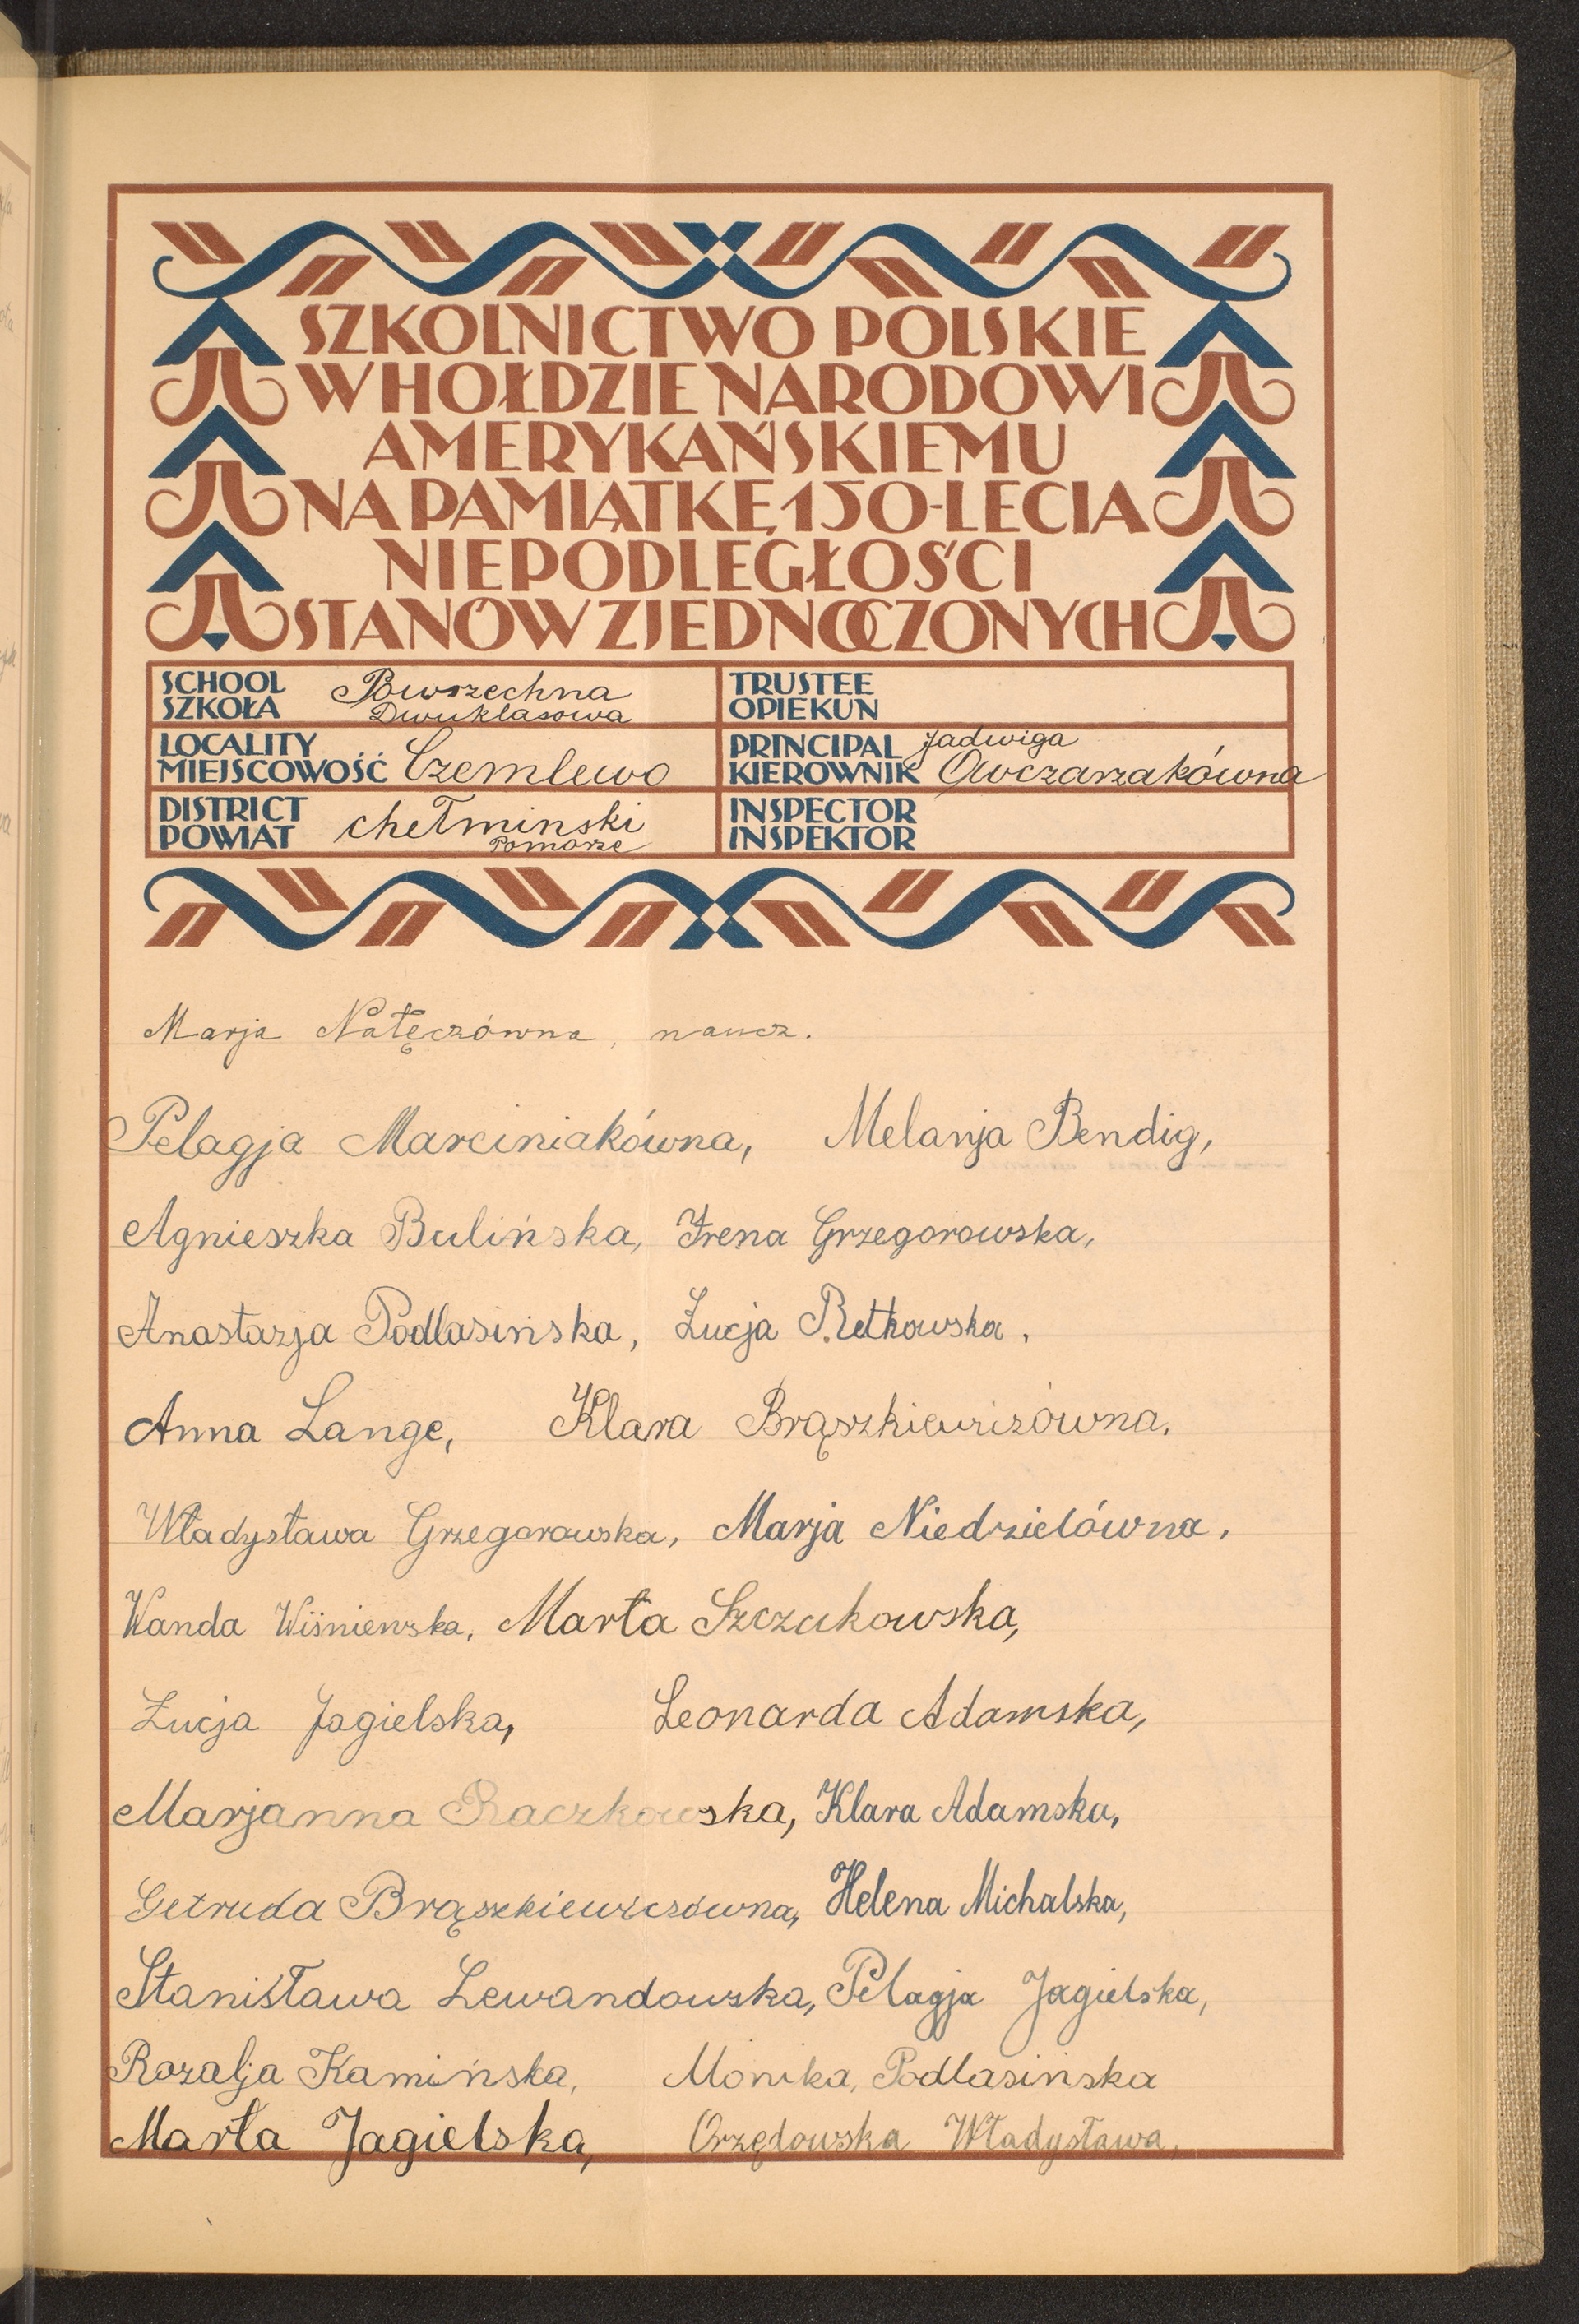 SZKOLNICTWO POLSKIE
W HOŁDZIE NARODOWI
AMERYKAŃSKIEMU
NA PAMIĄTKĘ 150-LECIA
NIEPODLEGŁOŚCI
STANÓW ZJEDNOCZONYCH
SCHOOL
SZKOŁA
Powszechna
Dwuklasowa
TRUSTEE
OPIEKUN
LOCALITY
MIEJSCOWOŚĆ Czemlewo
PRINCIPAL Jadwiga
KIEROWNIK Owczarzakówna
DISTRICT
POWIAT
chełminski
Pomorze
INSPECTOR
INSPEKTOR
Marja Nałęczówna, naucz.
Pelagja Marciniakówna, Melanja Bendig,
Agnieszka Bulińska, Irena Grzegorowska,
Anastazja Podlasińska, Łucja Retkowska,
Anna Lange, Klara Brąszkiewiczówna.
Władysława Grzegorowska, Marja Niedzielówna,
Wanda Wiśniewska, Marta Szczukowska,
Łucja Jagielska, Leonarda Adamska,
Marjanna Raczkowska, Klara Adamska,
Getruda Brąszkiewiczówna, Helena Michalska,
Stanisława Lewandowska, Pelagja Jagielska,
Rozalja Kamińska, Monika, Podlasińska
Marta Jagielska, Orzędowska Władysława,